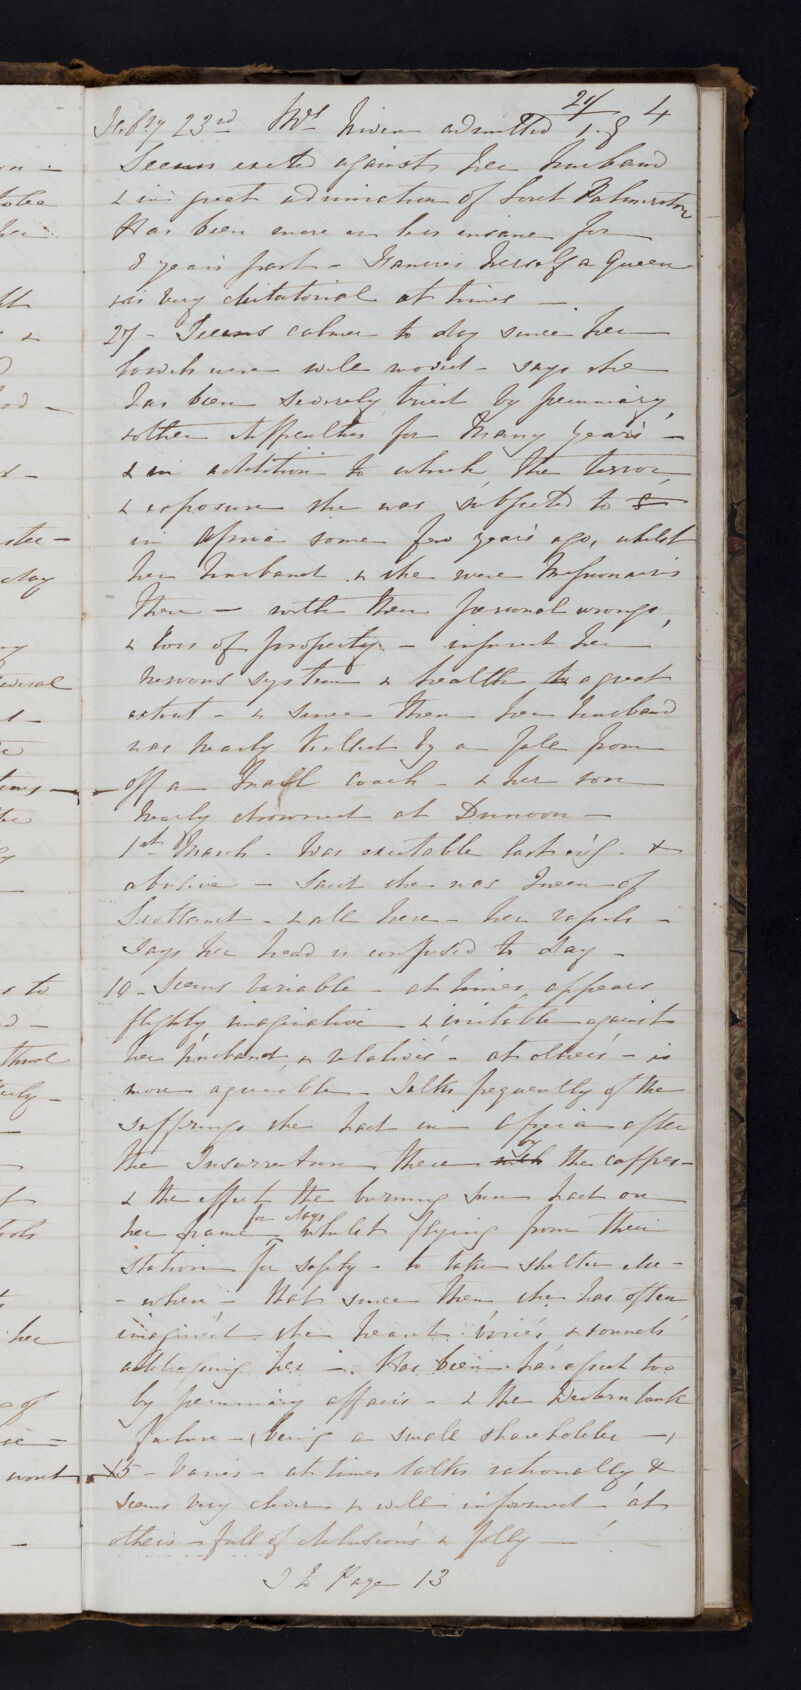 Feby 23rd Mrs Niven admitted 24/1.8 4
Seems excited against her husband
& in great admiration of Lord Palmerston
Has been more or less insane for
8 years past - Fancies herself a Queen
& is very dictatorial at times -
27 - Seems calmer to day since her
bowels were well moved - says she
has been severely tried by pecuniary
& other difficulties for many years -
& in addition to which the terror
& exposure she was subjected to
in Africa some few years ago, whilst
her husband & she were Missionaries
there - with their personal wrongs,
& loss of property - injured her
nervous system & health to a great
extent - & since then her husband
was nearly killed by a fall from
off a Mail coach - & her son
nearly drowned at Dunoon -
1st March - Was excitable last evg. &
abusive - Said she was Queen of
Scotland - & all here - her vassals -
Says her head is confused to day -
10 - Seems variable - at times appears
flighty imaginative & irritable against
her husband & relatives - at others - is
more agreeable - Talks frequently of the
sufferings she had in Africa after
the Insurrection there by the caffres -
& the effect the burning sun had on
her frame for days whilst flying from their
station for safety - to take shelter else -
- where - that since then she has often
imagined she heard voices & sounds
addressing her -. Has been harassed too
by pecuniary affairs - & the Western bank
failure - (being a small shareholder -)
15 - Varies - at times talks rationally &
seems very clever & well informed - at
others - full of delusions & folly -
T to Page 13
on -
to be
her
&
od -
day
several
times -
to
three
her
of
wont